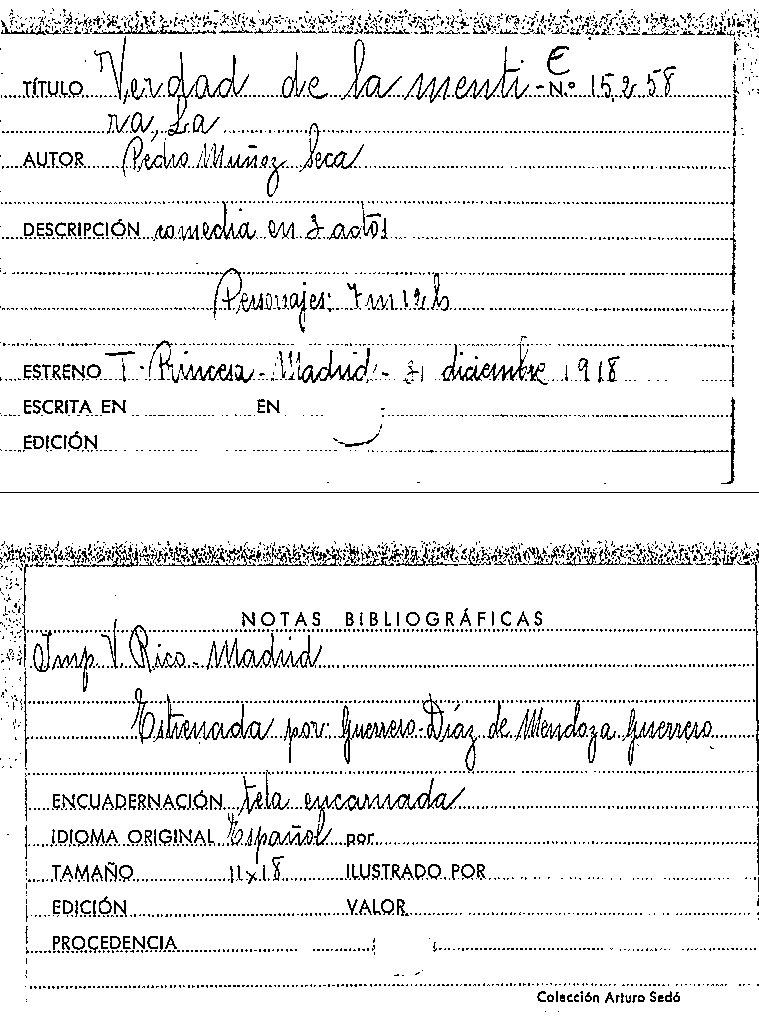 TÍTULO Verdad de la menti- E Nº 15258
ra, La
AUTOR Pedro Muñoz Seca
DESCRIPCIÓN comedia en 3 actos
Personajes: 7 m 12 h
ESTRENO T. Princesa - Madrid - 31 diciembre 1918
ESCRITA EN EN
EDICIÓN
NOTAS BIBLIOGRÁFICAS
Imp. V. Rico - Madrid
Estrenada por: Guerrero-Díaz de Mendoza Guerrero
ENCUADERNACIÓN tela encarnada
IDIOMA ORIGINAL Español por
TAMAÑO 11x18 ILUSTRADO POR
EDICIÓN VALOR
PROCEDENCIA
Colección Arturo Sedó